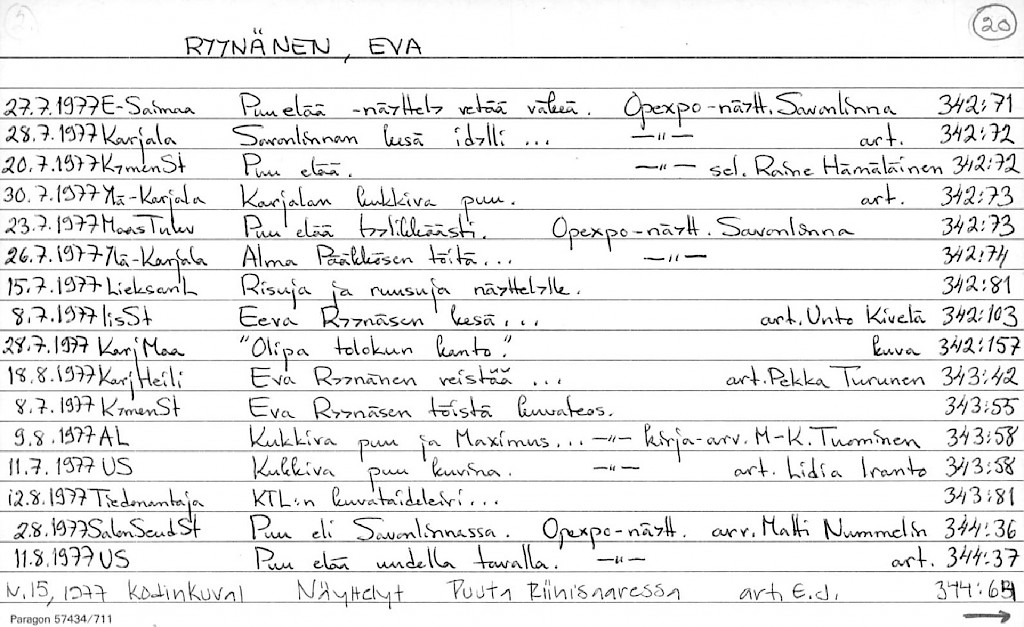 5.
20
RYYNÄNEN, EVA
27.7.1977 E-Saimaa Puu elää -näyttely vetää väkeä. Opexpo-näytt. Savonlinna 342:71
28.7.1977 Karjala Savonlinnan kesä idylli ... —"— art. 342:72
20.7.1977 KymenSt Puu elää. —"— sel. Raine Hämäläinen 342:72
30.7.1977 Ylä-Karjala Karjalan kukkiva puu. art. 342:73
23.7.1977 MaasTulev Puu elää tyylikkäästi. Opexpo-näytt. Savonlinna 342:73
26.7.1977 Ylä-Karjala Alma Pääkkösen töitä... —"— 342:74
15.7.1977 LieksanL Risuja ja ruusuja näyttelylle. 342:81
8.7.1977 IisSt Eeva Ryynäsen kesä... art. Unto Kivelä 342:103
28.7.1977 KarjMaa "Olipa tolokun kanto." kuva 342:157
18.8.1977 KarjHeili Eva Ryynänen veistää ... art. Pekka Turunen 343:42
8.7.1977 KymenSt Eva Ryynäsen töistä kuvateos. 343:55
9.8.1977 AL Kukkiva puu ja Maximus... —"— kirja-arv. M-K. Tuominen 343:58
11.7.1977 US Kukkiva puu kuvina. —"— art. Lidia Iranto 343:58
12.8.1977 Tiedonantaja KTL:n kuvataideleiri... 343:81
2.8.1977 SalonSeudSt Puu eli Savonlinnassa. Opexpo-näytt. arv. Matti Nummelin 344:36
11.8.1977 US Puu elää uudella tavalla. —"— art. 344:37
N.15, 1977 Kodinkuval Näyttelyt Puuta Riihisaaressa art. E.J.
Paragon 57434/711 →